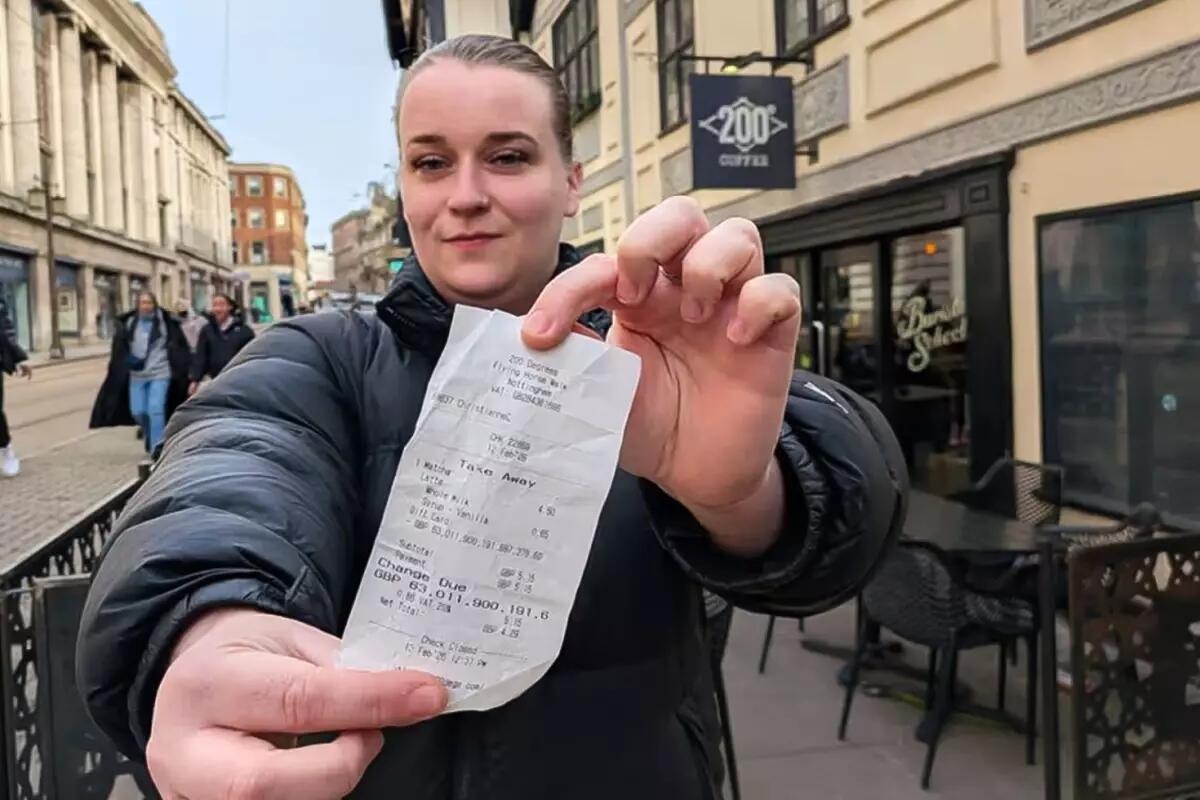 200°
COFFEE
Barista
School
200 Degrees
Flying Horse Walk
Nottingham
VAT:
CHK
12 Feb'26
Take Away
1 Matcha
Latte
4.50
Whole Milk
Syrup - Vanilla
0.65
Gift Card
Subtotal
GBP 5.15
Payment
GBP 5.15
Change Due
GBP 63,011,900,191.6
0.86 VAT 20%
5.15
Net Total
GBP 4.29
Check Closed